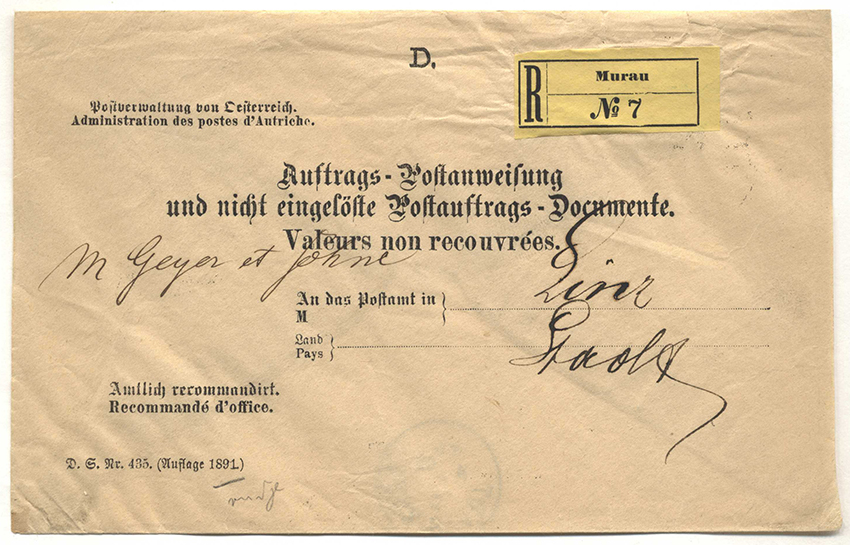 D.
R
Murau
№ 7
Postverwaltung von Oesterreich.
Administration des postes d'Autriche.
Auftrags-Postanweisung
und nicht eingelöste Postauftrags-Documente.
Valeurs non recouvrées.
M Geyer et Söhne
An das Postamt in } Linz
M
Land
Pays } Stadt
Amtlich recommandirt.
Recommandé d'office.
D. S. Nr. 435. (Auflage 1891.)